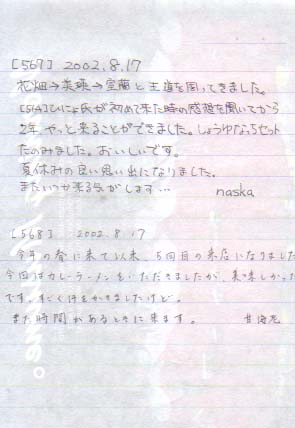 [567] 2002.8.17
花畑→美瑛→室蘭と王道を回ってきました。
[514]ひによ氏が初めて来た時の感想を聞いてから
2年、やっと来ることができました。しょうゆなっちセット
たのみました。おいしいです。
夏休みの良い思い出になりました。
またいつか来る気がします…
naska
[568] 2002.8.17
今年の春に来て以来、5回目の来店になりました
今回はカレーラーメンをいただきましたが、美味しかった
です。すごく汗をかきましたけど。
また時間があるときに来ます。